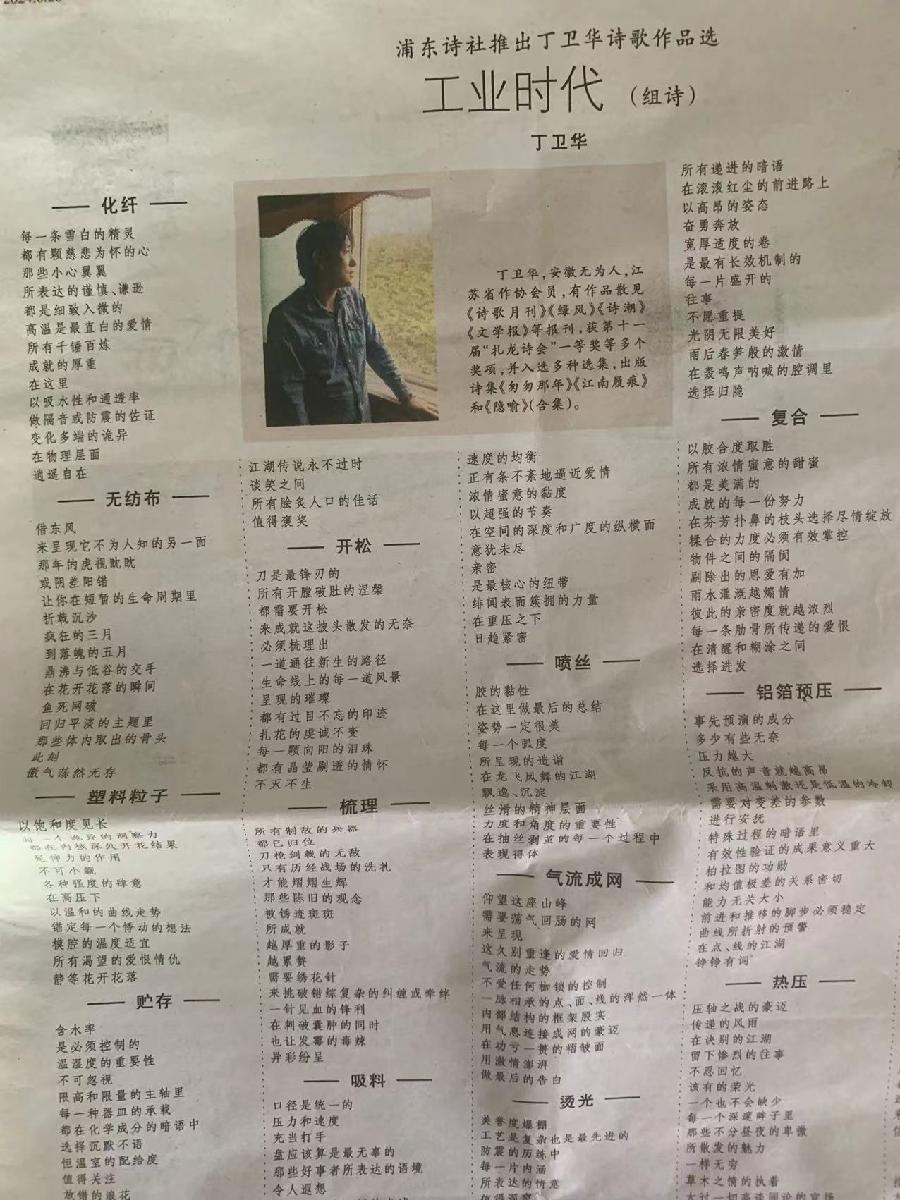 浦东诗社推出丁卫华诗歌作品选
工业时代（组诗）
丁卫华
化纤
每一条雪白的精灵
都有颗慈悲为怀的心
那些小心翼翼
所表达的谨慎、谦逊
都是细致入微的
高温是最直白的爱情
所有千锤百炼
成就的厚重
在这里
以吸水性和通透率
做隔音或防震的佐证
变化多端的诡异
在物理层面
逍遥自在
无纺布
借东风
来呈现它不为人知的另一面
那年的虎视眈眈
或阴差阳错
让你在短暂的生命周期里
折戟沉沙
疯狂的三月
到落魄的五月
鼎沸与低谷的交手
在花开花落的瞬间
鱼死网破
回归平淡的主题里
那些体内取出的骨头
此刻
傲气荡然无存
塑料粒子
以饱和度见长
都在内核深处开花结果
不可小觑
各种强度的肆意
在高压下
以温和的曲线走势
锚定每一个悸动的想法
模腔的温度适宜
所有渴望的爱恨情仇
静等花开花落
贮存
含水率
是必须控制的
温湿度的重要性
不可忽视
限高和限量的主轴里
每一种器皿的承载
都在化学成分的暗语中
选择沉默不语
恒温室的配给度
值得关注
放错的浪花
丁卫华，安徽无为人，江
苏省作协会员，有作品散见
《诗歌月刊》《绿风》《诗潮》
《文学报》等报刊，获第十一
届“扎龙诗会”一等奖等多个
奖项，并入选多种选集，出版
诗集《匆匆那年》《江南履痕》
和《隐喻》（合集）。
江湖传说永不过时
谈笑之间
所有脍炙人口的佳话
值得褒奖
开松
刀是最锋刃的
所有开膛破肚的涅槃
都需要开松
来成就这披头散发的无奈
必须梳理出
一道通往新生的路径
生命线上的每一道风景
呈现的璀璨
都有过目不忘的印迹
扎花的虔诚不变
每一颗向阳的泪珠
都有晶莹剔透的情怀
不灭不生
梳理
所有制敌的兵器
都已归位
刀枪剑戟的无敌
只有历经战场的洗礼
才能熠熠生辉
那些陈旧的观念
被锈迹斑斑
所成就
越厚重的影子
越累赘
需要绣花针
来挑破错综复杂的纠缠或牵绊
一针见血的锋利
在刺破囊肿的同时
也让发霉的毒辣
异彩纷呈
吸料
口径是统一的
压力和速度
充当打手
盘应该算是最无辜的
那些好事者所表达的语境
令人遐想
速度的均衡
正有条不紊地逼近爱情
浓情蜜意的黏度
以超强的节奏
在空间的深度和广度的纵横面
意犹未尽
亲密
是最核心的纽带
绯闻表面簇拥的力量
在重压之下
日趋紧密
喷丝
胶的黏性
在这里做最后的总结
姿势一定很美
每一个弧度
所呈现的造诣
在龙飞凤舞的江湖
飘逸、沉淀
丝滑的精神层面
力度和角度的重要性
在抽丝剥茧的每一个过程中
表现得体
气流成网
仰望这座山峰
需要荡气回肠的网
来呈现
这久别重逢的爱情回归
气流的走势
不爱任何枷锁的控制
一脉相承的点、面、线的浑然一体
内部结构的框架殷实
用气息连接成网的豪迈
在功亏一篑的褶皱面
用激情澎湃
做最后的告白
烫光
美誉度爆棚
工艺是复杂也是最先进的
防震的历练中
每一片内涵
所表达的情意
所有递进的暗语
在滚滚红尘的前进路上
以高昂的姿态
奋勇奔放
宽厚适度的卷
是最有长效机制的
每一片盛开的
往事
不愿重提
光阴无限美好
雨后春笋般的激情
在轰鸣声呐喊的腔调里
选择归隐
复合
以胶合度取胜
所有浓情蜜意的甜蜜
都是美满的
成就的每一份努力
在芬芳扑鼻的枝头选择尽情绽放
糅合的力度必须有效掌控
物件之间的隔阂
剔除出的恩爱有加
雨水灌溉越煽情
彼此的亲密度就越浓烈
每一条肋骨所传递的爱恨
在清醒和糊涂之间
选择迸发
铝箔预压
事先预演的成分
多少有些无奈
压力越大
反抗的声音就越高昂
采用高温刺激还是低温的冷却
需要对变差的参数
进行安抚
特殊过程的暗语里
有效性验证的成果意义重大
柏拉图的功勋
和均值极差的关系密切
能力无关大小
前进和推移的脚步必须稳定
曲线所折射的预警
在点、线的江湖
铮铮有词
热压
压轴之战的豪迈
传递的风雨
在诀别的江湖
留下惨烈的往事
不忍回忆
该有的荣光
一个也不会缺少
每一个深邃眸子里
那些不分昼夜的卑微
所散发的魅力
一样无穷
草木之情的执着